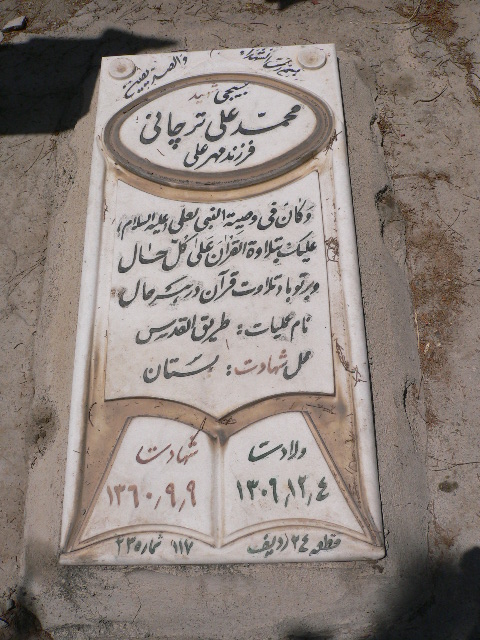 والصدیقین
بسیجی شهید
محمد علی ترچانی
فرزند مهر علی
وَکانَ فی وصیة النبی لعلی (علیه السلام)
علیک بتلاوة القرآن علی کل حال
و بر تو باد تلاوت قرآن در هر حال
نام عملیات: طریق القدس
محل شهادت: بستان
ولادت
۱۳۰۶٫۱۲٫٤
شهادت
۱۳۶۰٫۹٫۹
قطعه ۲٤ ردیف ۱۱۷ شماره ۲۳